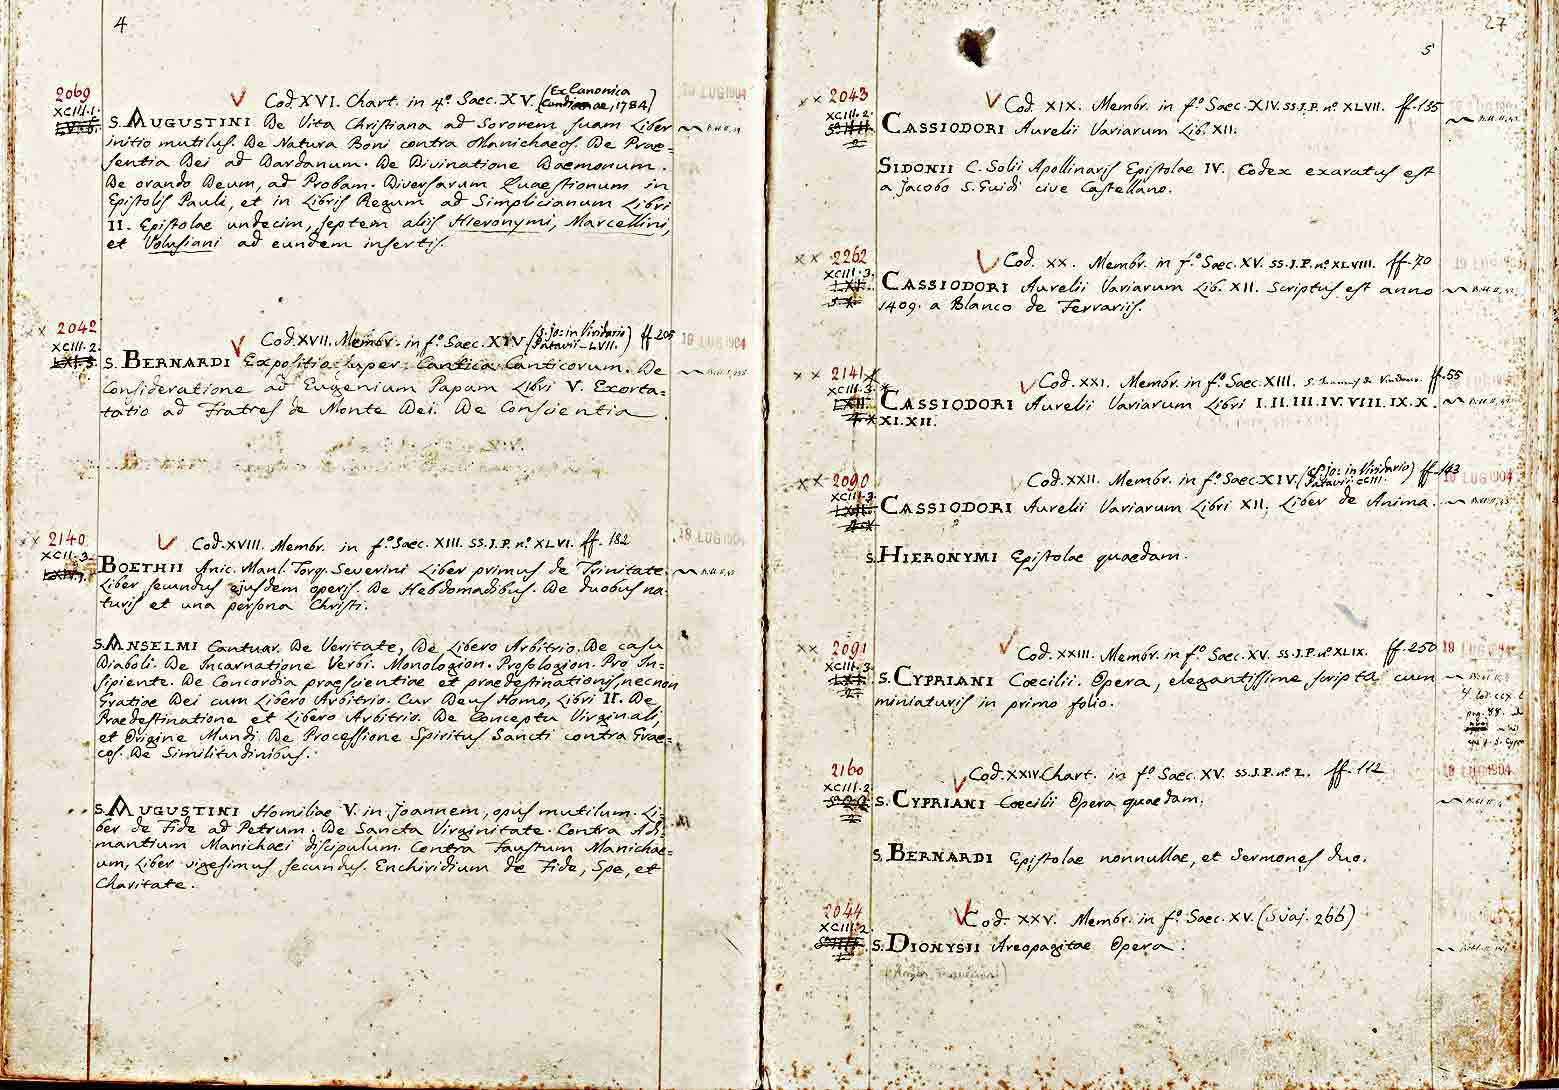 4
2069
XCIII.1.
Cod. XVI. Chart. in 4º Saec. XV. (Ex Canonica
Candianae, 1784)
S. AUGUSTINI De Vita Christiana ad Sororem suam Liber
initio mutilus. De Natura Boni contra Manichaeos. De Prae=
sentia Dei ad Dardanum. De Divinatione Daemonum.
De orando Deum, ad Probam. Diversarum Quaestionum in
Epistolis Pauli, et in Libris Regum ad Simplicianum Libri
II. Epistolae undecim, septem aliis Hieronymi, Marcellini,
et Volusiani ad eundem insertis.
2042
XCIII.2.
Cod. XVII. Membr. in fº. Saec. XIV (S. Jo: in Viridario
Patavii - LVII.) ff. 205
18 LUG 1904
S. BERNARDI Expositio super Cantica Canticorum. De
Consideratione ad Eugenium Papam Libri V. Exorta=
tatio ad Fratres de Monte Dei. De Conscientia.
2140
XCII.3.
Cod. XVIII. Membr. in fº. Saec. XIII. SS. J. P. nº. XLVI. ff. 182
18 LUG 1904
BOETHII Anic. Manl. Torq. Severini Liber primus de Trinitate.
Liber secundus ejusdem operis. De Hebdomadibus. De duobus na=
turis et una persona Christi.
S. ANSELMI Cantuar. De Veritate, De Libero Arbitrio. De casu
Diaboli. De Incarnatione Verbi. Monologion. Prosologion. Pro In=
sipiente. De Concordia praescientiae et praedestinationis, necnon
Gratiae Dei cum Libero Arbitrio. Cur Deus Homo, Libri II. De
Praedestinatione et Libero Arbitrio. De Conceptu Virginali,
et Origine Mundi. De Processione Spiritus Sancti contra Grae=
cos. De Similitudinibus.
S. AUGUSTINI Homiliae V. in Joannem, opus mutilum. Li=
ber de Fide ad Petrum. De Sancta Virginitate. Contra Adi=
mantium Manichaei discipulum. Contra Faustum Manichae=
um, Liber vigesimus secundus. Enchiridium de Fide, Spe, et
Charitate.
27
5
2043
XCIII.2.
Cod. XIX. Membr. in fº. Saec. XIV. SS. J. P. nº. XLVII. ff. 155
CASSIODORI Aurelii Variarum Lib. XII.
SIDONII C. Solii Apollinaris Epistolae IV. Codex exaratus est
a Jacobo S. Guidi cive Castellano.
2262
XCIII.3.
Cod. XX. Membr. in fº. Saec. XV. SS. J. P. nº. XLVIII. ff. 70
CASSIODORI Aurelii Variarum Lib. XII. Scriptus est anno
1409. a Blanco de Ferrariis.
2141
XCIII.3.
Cod. XXI. Membr. in fº. Saec. XIII. ff. 55
CASSIODORI Aurelii Variarum Libri I. II. III. IV. VIII. IX. X.
XI. XII.
2090
XCIII.3.
Cod. XXII. Membr. in fº. Saec. XIV. (S. Jo: in Viridario
Patavii. CCIII.) ff. 143
18 LUG 1904
CASSIODORI Aurelii Variarum Libri XII, Liber de Anima.
S. HIERONYMI Epistolae quaedam.
2091
XCIII.3.
Cod. XXIII. Membr. in fº. Saec. XV. SS. J. P. nº. XLIX. ff. 250
S. CYPRIANI Cœcilii. Opera, elegantissime scripta cum
miniaturis in primo folio.
2160
XCIII.2.
Cod. XXIV. Chart. in fº. Saec. XV. SS. J. P. nº. L. ff. 112
18 LUG 1904
S. CYPRIANI Cœcilii Opera quaedam.
S. BERNARDI Epistolae nonnullae, et Sermones duo.
2044
XCIII.2.
Cod. XXV. Membr. in fº. Saec. XV. (Svaj. 266)
S. DIONYSII Areopagitae Opera.